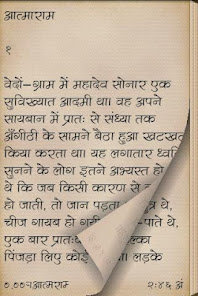 आत्माराम
१
वेदों-ग्राम में महादेव सोनार एक
सुविख्यात आदमी था। वह अपने
सायबान में प्रातः से संध्या तक
अँगीठी के सामने बैठा हुआ खटखट
किया करता था। यह लगातार ध्वनि
सुनने के लोग इतने अभ्यस्त हो
थे कि जब किसी कारण से
हो जाती, तो जान पड़ता
चीज गायब हो पाते थे,
एक बार
पिंजड़ा लिए कोई लड़के
०.००%आत्माराम